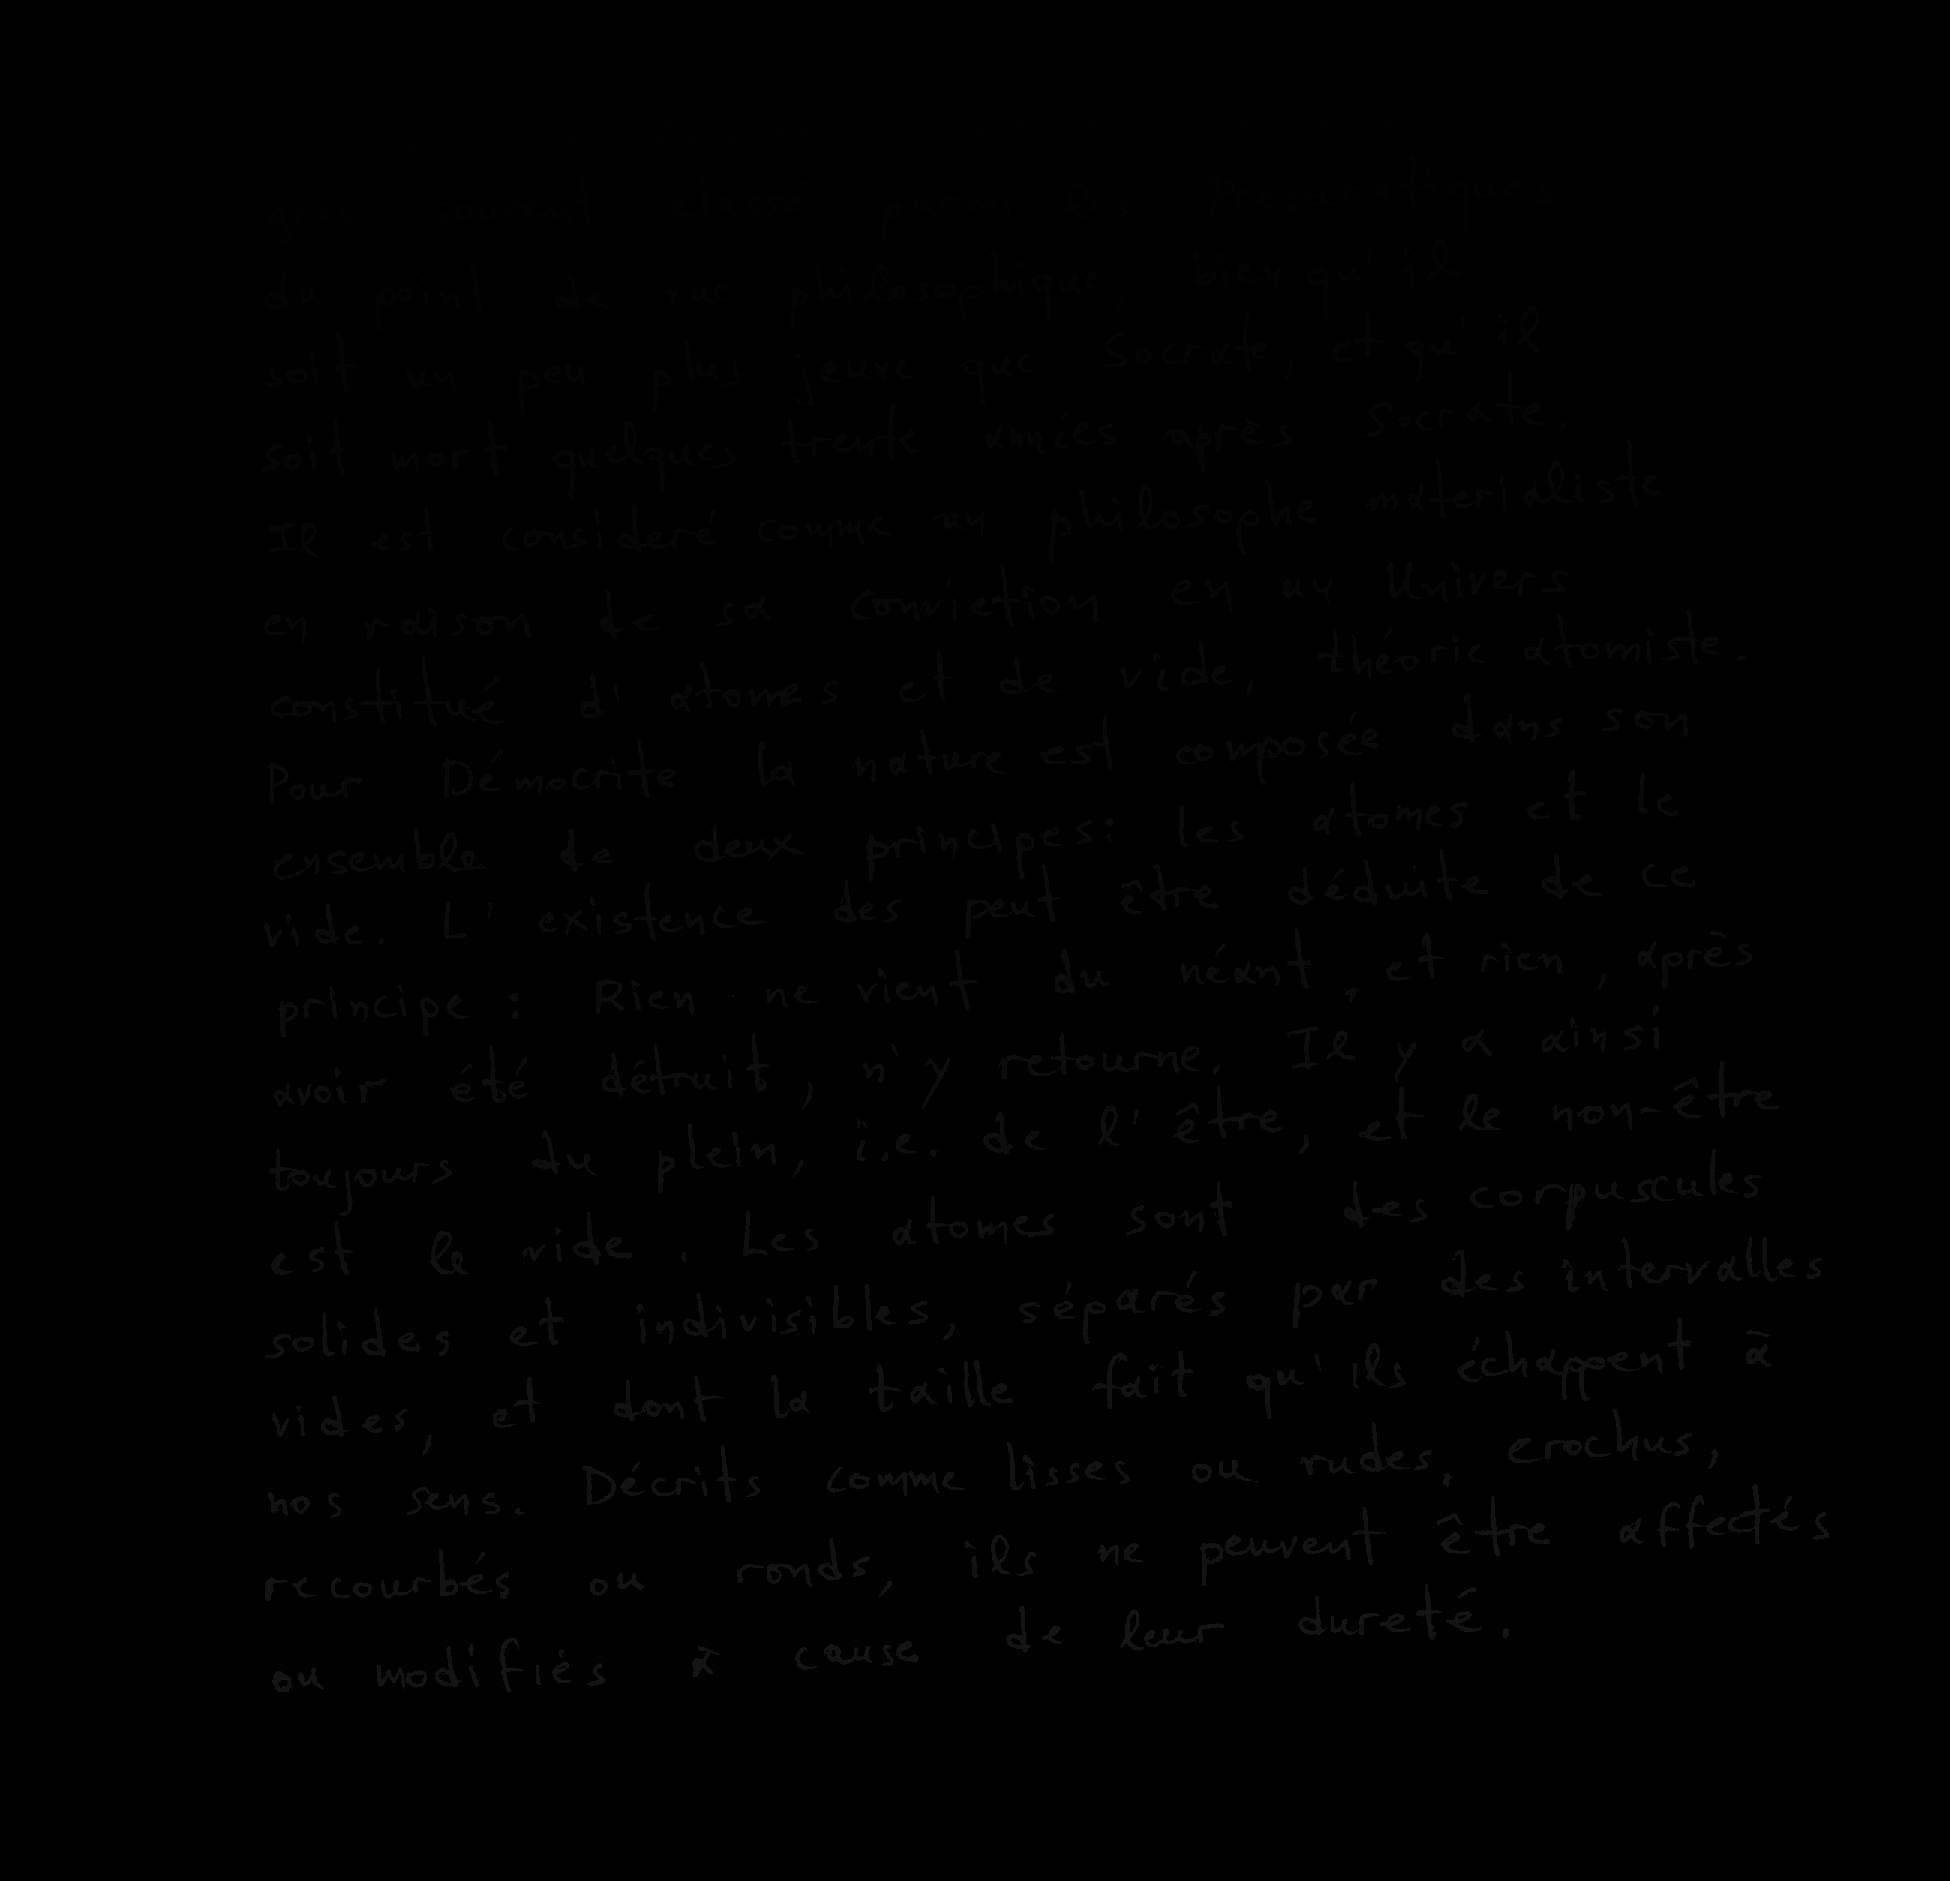 Démocrite d'Abdère était un philosophe
grec souvent classé parmi les Présocratiques
du point de vue philosophique, bien qu'il
soit un peu plus jeune que Socrate, et qu'il
soit mort quelques trente années après Socrate.
Il est consideré comme un philosophe materialiste
en raison de sa conviction en un Univers
constitué d'atomes et de vide, théorie atomiste.
Pour Démocrite la nature est composée dans son
ensemble de deux principes: les atomes et le
vide. L'existence des peut être déduite de ce
principe : Rien ne vient du néant, et rien, après
avoir été détruit, n'y retourne. Il y a ainsi
toujours du plein, i.e. de l'être, et le non-être
est le vide. Les atomes sont des corpuscules
solides et indivisibles, séparés par des intervalles
vides, et dont la taille fait qu'ils échappent à
nos sens. Décrits comme lisses ou rudes, crochus,
recourbés ou ronds, ils ne peuvent être affectés
ou modifiés à cause de leur dureté.